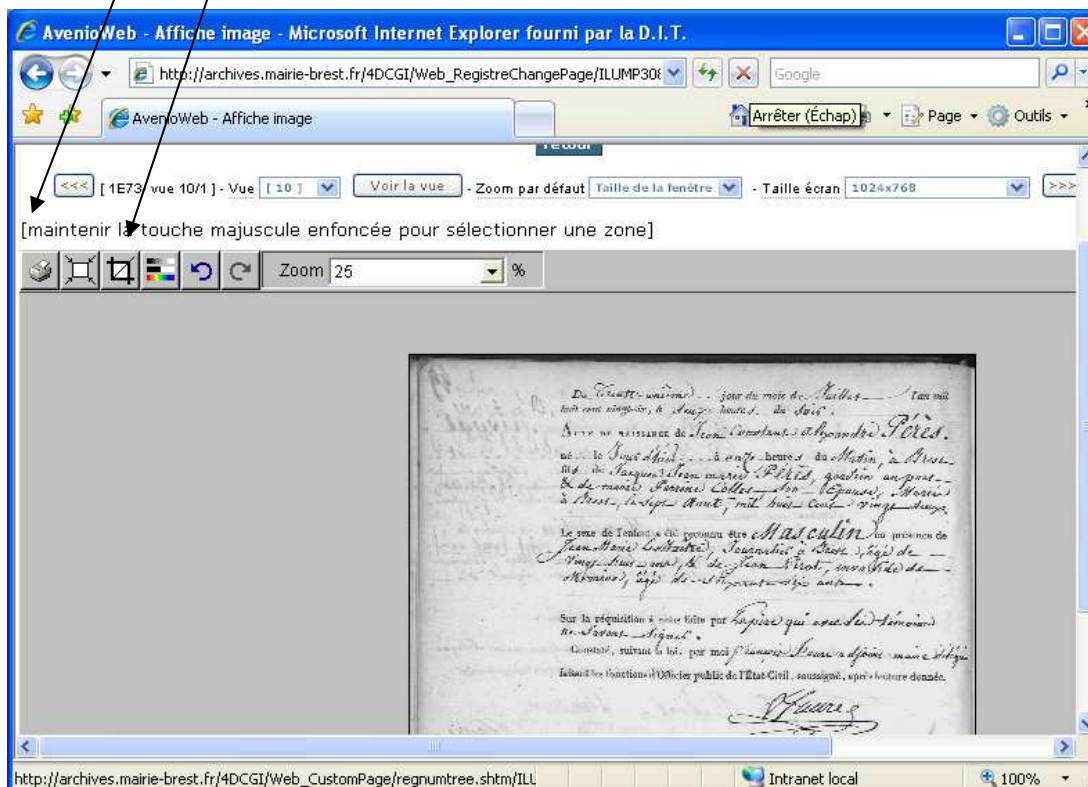 AvenioWeb - Affiche image - Microsoft Internet Explorer fourni par la D.I.T.
http://archives.mairie-brest.fr/4DCGI/Web_RegistreChangePage/ILUMP308
Google
AvenioWeb - Affiche image
Arrêter (Échap)
Page
Outils
retour
<<< [ 1E73, vue 10/1 ] - Vue [ 10 ] Voir la vue - Zoom par défaut Taille de la fenêtre - Taille écran 1024x768 >>>
[maintenir la touche majuscule enfoncée pour sélectionner une zone]
Zoom 25 %
Du Trente-unième jour du mois de Juillet l'an mil
huit cent heures du Soir.
Acte de naissance de Jean Constant Alexandre Pérès.
né le Jour d'hier à onze heures du Matin, à Brest
fils de Jacques Jean marie Pérès, gardien au port
& de marie Perrine son Epouse, Mariés
à Brest, le Sept Aout, mil huit Cent vingt deux
Le sexe de l'enfant a été reconnu être Masculin en présence de
Jean Marie LeMaitre, Journalier à Brest, âgé de
Vingt ans, & de Jean invalide de
âgé de ans.
Sur la réquisition à nous faite par Le père qui avec les témoins
ne Savent Signer.
Constaté, suivant la loi, par moi françois adjoint maire délégué
faisant les fonctions d'Officier public de l'État Civil, soussigné, après lecture donnée.
http://archives.mairie-brest.fr/4DCGI/Web_CustomPage/regnumtree.shtm/ILL
Intranet local
100%